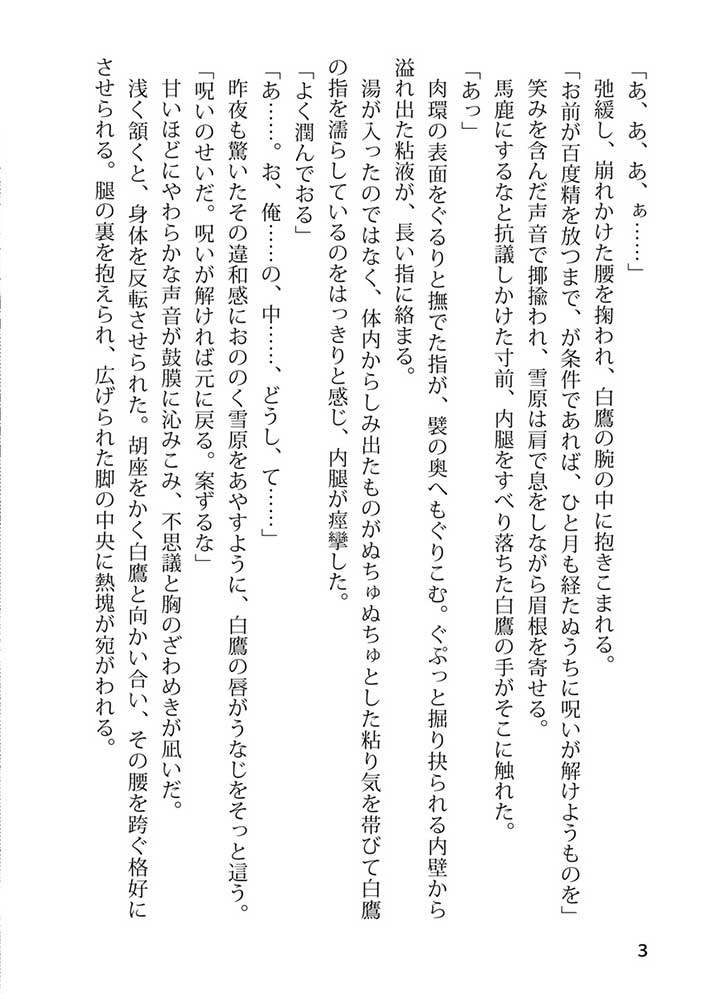 「あ、あ、あ、ぁ……」
弛緩し、崩れかけた腰を掬われ、白鷹の腕の中に抱きこまれる。
「お前が百度精を放つまで、が条件であれば、ひと月も経たぬうちに呪いが解けようものを」
笑みを含んだ声音で揶揄われ、雪原は肩で息をしながら眉根を寄せる。
馬鹿にするなと抗議しかけた寸前、内腿をすべり落ちた白鷹の手がそこに触れた。
「あっ」
肉環の表面をぐるりと撫でた指が、襞の奥へもぐりこむ。ぐぷっと掘り抉られる内壁から
溢れ出た粘液が、長い指に絡まる。
湯が入ったのではなく、体内からしみ出たものがぬちゅぬちゅとした粘り気を帯びて白鷹
の指を濡らしているのをはっきりと感じ、内腿が痙攣した。
「よく潤んでおる」
「あ……。お、俺……の、中……、どうし、て……」
昨夜も驚いたその違和感におののく雪原をあやすように、白鷹の唇がうなじをそっと這う。
「呪いのせいだ。呪いが解ければ元に戻る。案ずるな」
甘いほどにやわらかな声音が鼓膜に沁みこみ、不思議と胸のざわめきが凪いだ。
浅く頷くと、身体を反転させられた。胡座をかく白鷹と向かい合い、その腰を跨ぐ格好に
させられる。腿の裏を抱えられ、広げられた脚の中央に熱塊が宛がわれる。
3